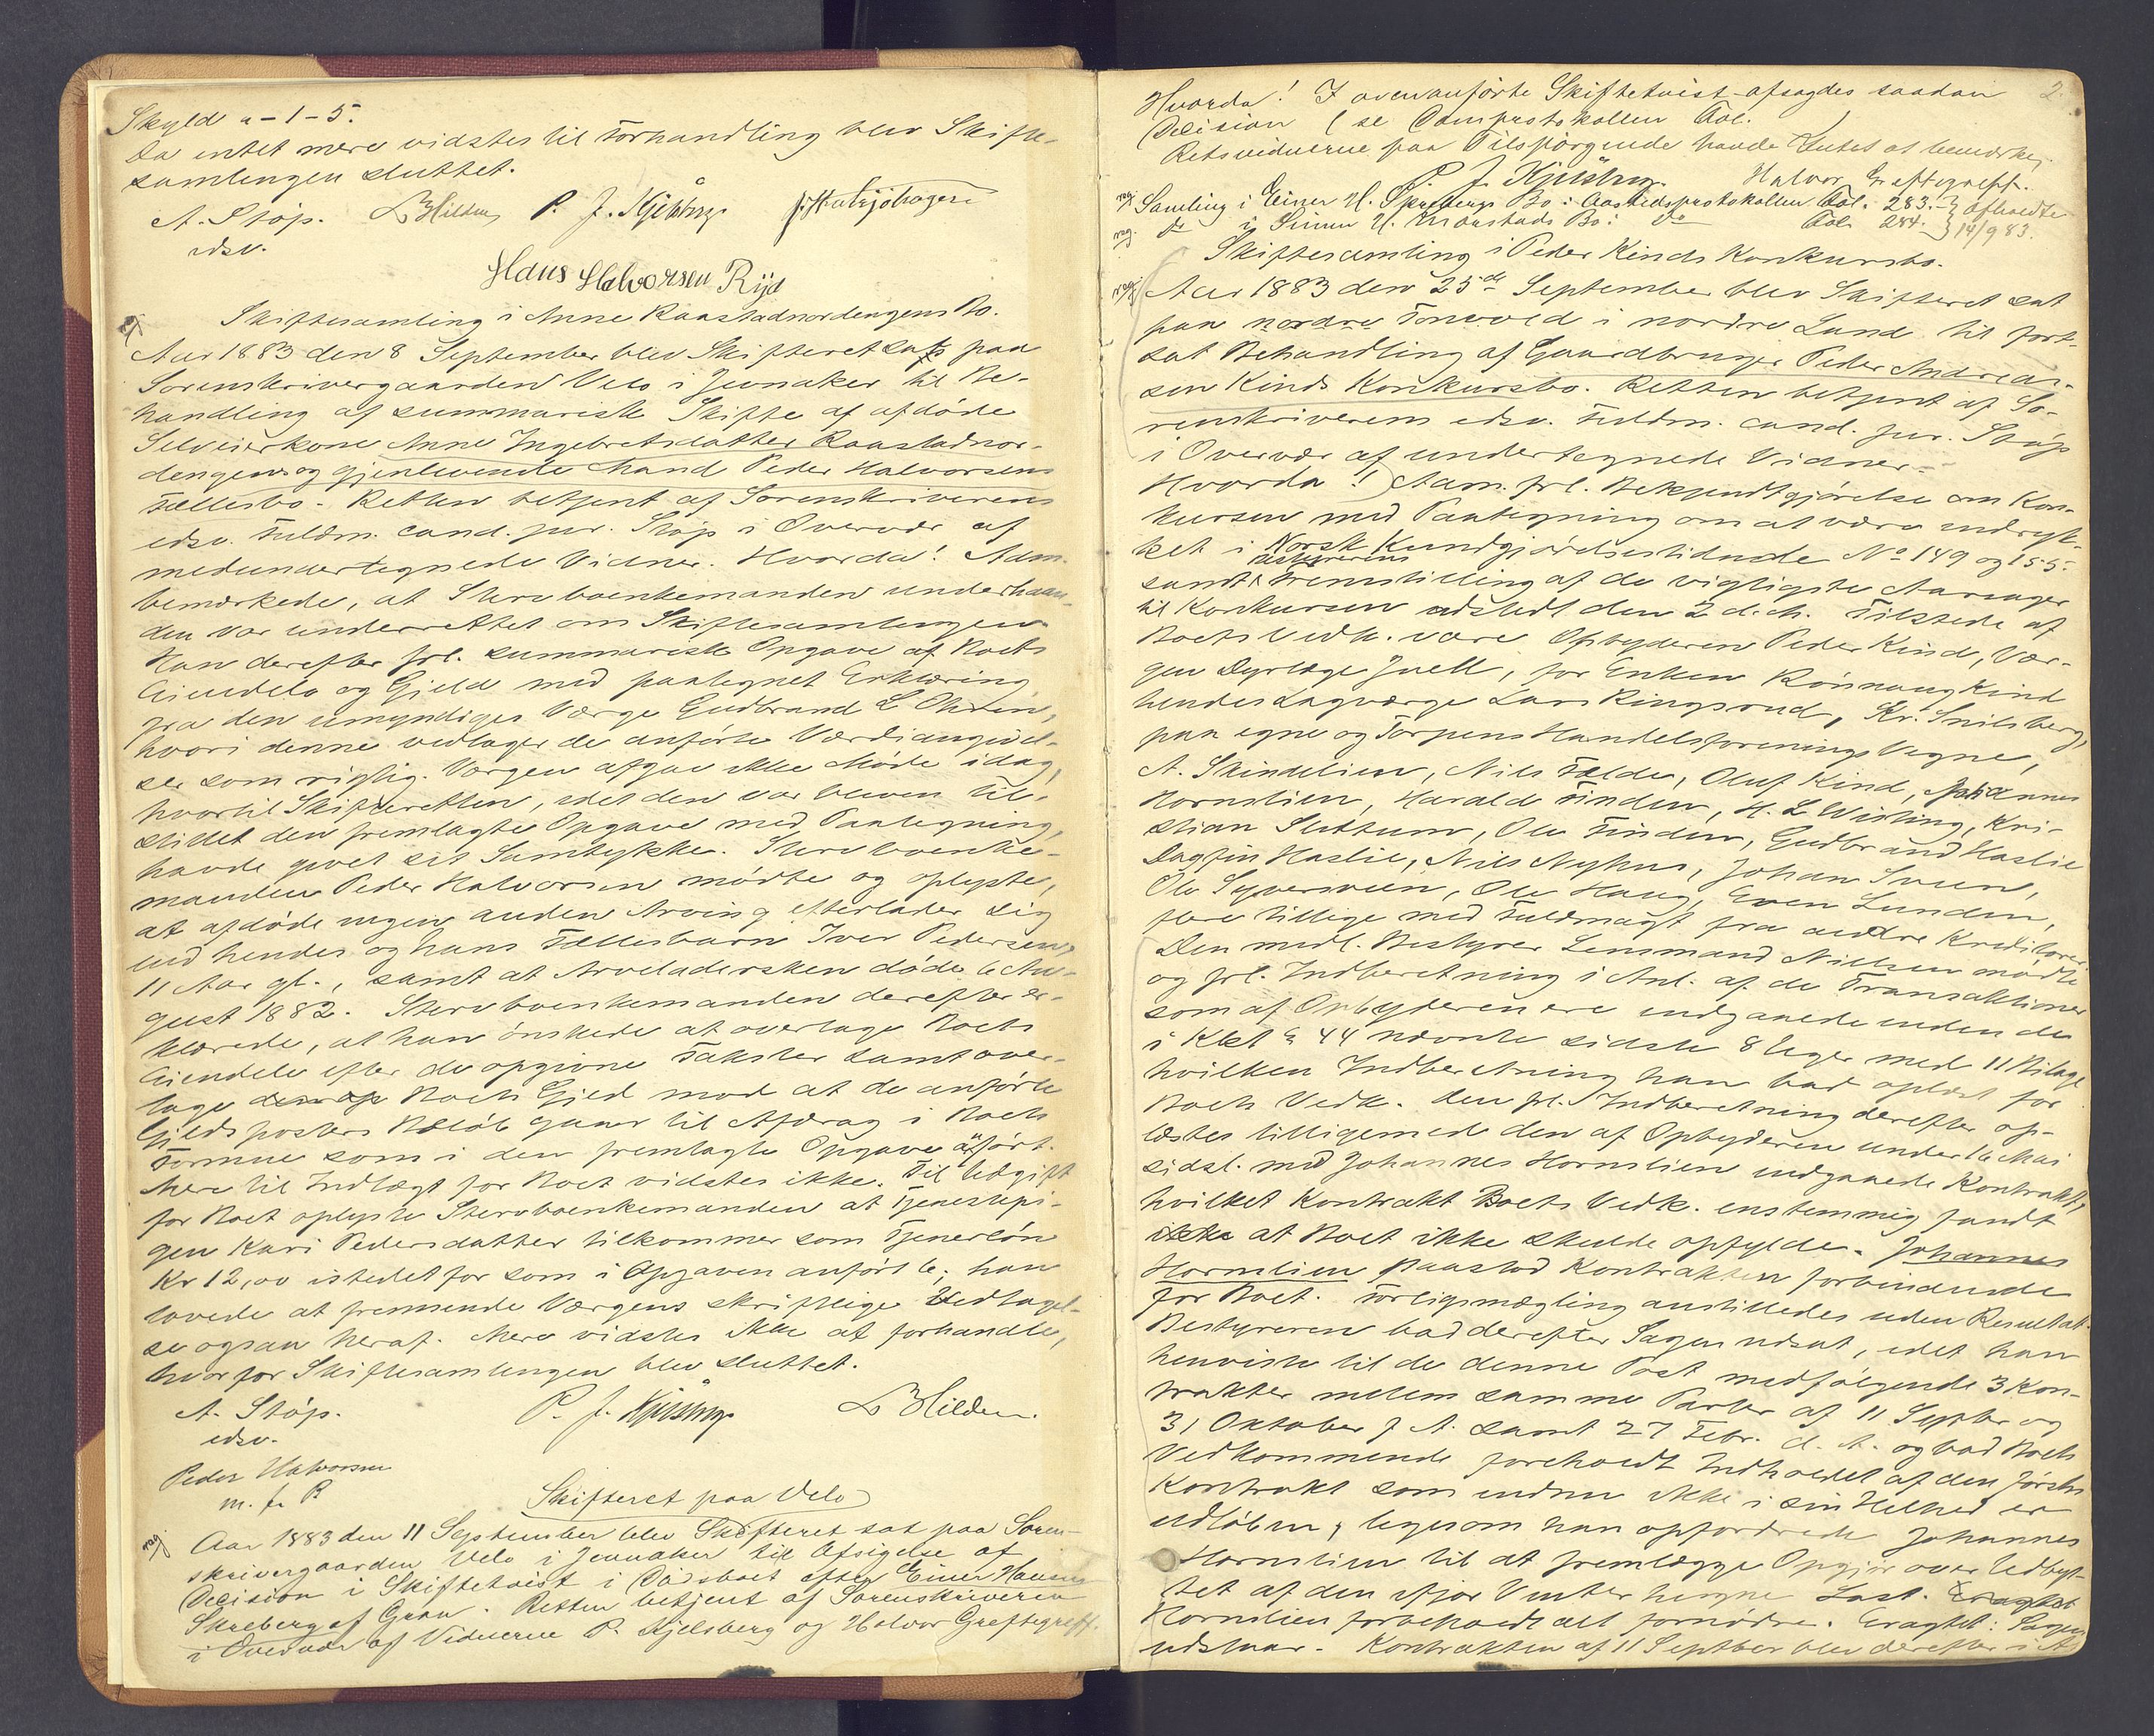 Skyld " - 1 - 5.
Da intet mere vidstes til Forhandling blev Skifte-
samlingen sluttet.
A. Støp. L Hilden P. J. Kjelsberg
edsv.
Hans Halvorsen Rÿd
Skiftesamling i Anne Raastadnordengens Bo.
Aar 1883 den 8 September blev Skifteret sat paa
Sorenskrivergaarden Velo i Jevnaker til Be-
handling af summarisk Skifte af afdøde
Selveierkone Anne Ingebretsdatter Raastadnor-
dengens og gjenlevende Mand Peder Halvorsens
Fællesbo. Retten betjent af Sorenskriverens
edsv. Fuldm. cand. jur. Støp i Overvær af
medundertegnede Vidner. Hvorda! Adm.
bemærkede, at Stervboenkemanden underhaan-
den var underrettet om Skiftesamlingen.
Han derefter frl. summarisk Opgave af Boets
Eiendele og Gjeld med paategnet Erklæring
fra den umyndiges Værge Gudbrand L
hvori denne vedtager de anførte Værdiangivel-
ser som rigtig. Værgen afgav ikke Møde idag,
hvortil Skifteretten, idet den var bleven til-
stillet den fremlagte Opgave med Paategning,
havde givet sit Samtykke. Stervboenke-
manden Peder Halvorsen mødte og oplyste,
at afdøde ingen anden Arving efterlader sig
end hendes og hans Fællesbarn Iver Pedersen,
11 Aar gl., samt at Arveladersken døde 6 Au-
gust 1882. Stervboenkemanden derefter er-
klærede, at han ønskede at overtage Boets
Eiendele efter de opgivne Takster samt over-
tage Boets Gjeld mod at de anførte
Gjeldsposters Beløb gaar til Afdrag i Boets
Formue som i den fremlagte Opgave anført.
Mere til Indtægt for Boet vidstes ikke. Til Udgift
for Boet oplyste Stervboenkemanden at Tjenestepi-
gen Kari Pedersdatter tilkommer som Tjenerløn
Kr 12,00 istedetfor som i Opgaven anført 6; han
lovede at fremsende Værgens skriftlige Vedtagel-
se ogsaa heraf. Mere vidstes ikke at forhandle,
hvorfor Skiftesamlingen blev sluttet.
A. Støp. P. J. Kjelsberg L Hilden.
edsv.
Peder Halvorsen
m. f. P.
Skifteret paa Velo
Aar 1883 den 11 September blev Skifteret sat paa Soren-
skrivergaarden Velo i Jevnaker til Afsigelse af
Decision i Skiftetvist i Dødsboet efter Einer Hansen
Skreberg af Gran. Retten betjent af Sorenskriveren
i Overvær af Vidnerne P. Kjelsberg og Halvor Greftegreff.
2.
Hvorda! I ovenanførte Skiftetvist afsagdes saadan
Decision (se Domprotokollen Fol. )
Retsvidnerne paa Tilspørgende havde Intet at bemærke.
P. J. Kjelsberg. Halvor Greftegreff.
Samling i Einer H. Skrebergs Bo: Aastedsprotokollen Fol. 283. } afholdte
do i Simen H. Maurstads Bo: do Fol. 284. } 14/9 83.
Skiftesamling i Peder Kinds Konkursbo.
Aar 1883 den 25de September blev Skifteret sat
paa nordre Fonevold i nordre Land til fort-
sat Behandling af Gaardbruger Peder Andrea-
sen Kinds Konkursbo. Retten betjent af So-
renskriverens edsv. Fuldm. cand. jur. Støp
i Overvær af undertegnede Vidner.
Hvorda! Adm. frl. Bekjendtgjørelse om Kon-
kursen med Paategning om at være indryk-
ket i Norsk Kundgjørelsestidende No 149 og 155.
samt Bestyrerens Fremstilling af de vigtigste Aarsager
til Konkursen udstedt den 2 d. M. Tilstede af
Boets Vedk. vare Opbyderen Peder Kind, Vær-
gen Dyrlæge Juell, for Enken Rønnaug Kind
hendes Lagværge Lars Ringsrud, Kr. Snilsberg,
paa egne og Torpens Handelsforenings Vegne,
A. Skindelien, Nils Fælde, Oluf Kind, Johannes
Hornslien, Harald Finden, H. L. Wisting, Kri-
stian Slettum, Ole Finden, Gudbrand Haslie
Dagfin Haslie, Nils Nyhus, Johan Sveen,
Ole Syversveen, Ole Haug, Even Lunden,
flere tillige med Fuldmagt fra andre Kreditorer.
Den midl. Bestyrer Lensmand Nielsen mødte
og frl. Indberetning i Anl. af de Transaktioner
som af Opbyderen ere indgaaede inden de
i Kl § 44 nævnte sidste 8 Uger med 11 Bilage
hvilken Indberetning han bad oplæst for
Boets Vedk. Den frl. Indberetning derefter op-
læstes tilligemed den af Opbyderen under 16 Mai
sidstl. med Johannes Hornslien indgaaede Kontrakt,
hvilket Kontrakt Boets Vedk. enstemmig fandt
at Boet ikke skulde opfylde. Johannes
Hornslien paastod Kontrakten forbindende
for Boet. Forligsmægling anstilledes uden Resultat.
Bestyreren bad derefter Sagen udsat, idet han
henviste til de denne Post medfølgende 3 Kon-
trakter mellem samme Parter af 11 Septbr og
31 Oktober f A. samt 27 Febr. d. A. og bad Boets
Vedkommende foreholdt Indholdet af den første
Kontrakt som endnu ikke i sin Helhed er
udløben, ligesom han opfordrede Johannes
Hornslien til at fremlægge Opgjør over Udbyt-
tet af den ifjor Vinter hugne Last.
Hornslien forbeholdt alt fornødne. Eragtet: Sagen
udstaar. Kontrakten af 11 Septber blev derefter